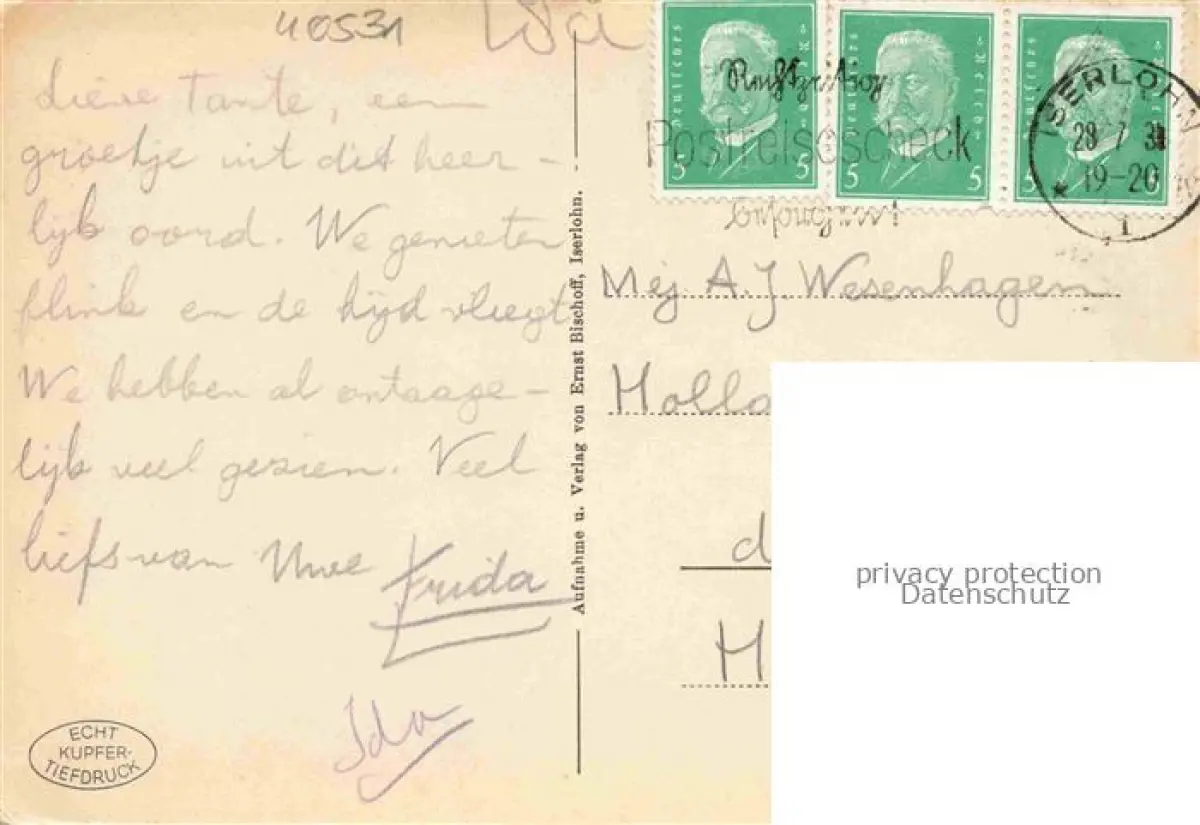 40531
Lieve Tante, een
groetje uit dit heer-
lijk oord. We genieten
flink en de tijd vliegt
We hebben al ontzage-
lijk veel gezien. Veel
liefs van Uwe
Frida
Ida
ECHT
KUPFER-
TIEFDRUCK
Aufnahme u. Verlag von Ernst Bischoff, Iserlohn.
Deutsches Reich
5 5
Deutsches Reich
5 5
Deutsches Reich
5
Rechtzeitig
Postreisescheck
besorgen!
ISERLOHN
28 7 31
19-20
1
Mej A.J Wesenhagen
Holla
d
H
privacy protection
Datenschutz